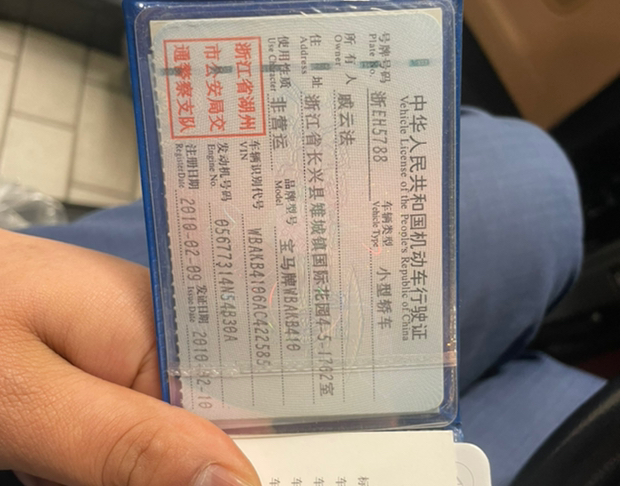 中华人民共和国机动车行驶证
Vehicle License of the People's Republic of China
号牌号码 浙EH5788 车辆类型 小型轿车
Plate No. Vehicle Type
所有人 戚云法
Owner
住址 浙江省长兴县雉城镇国际花园4-5-1702室
Address
使用性质 非营运 品牌型号 宝马牌WBAKB410
Use Character Model
浙江省湖州
市公安局交
通警察支队
车辆识别代号 WBAKB4106AC422585
VIN
发动机号码 05677314N54B30A
Engine No.
注册日期 2010-02-09 发证日期 2010-02-10
Register Date Issue Date